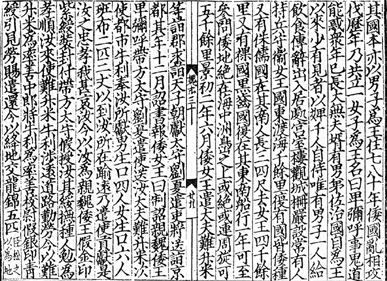 其國本亦以男子爲王住七八十年倭國亂相攻
伐歷年乃共立一女子爲王名曰卑彌呼事鬼道
能惑衆年已長大無夫壻有男弟佐治國自爲王
以來少有見者以婢千人自侍唯有男子一人給
飲食傳辭出入居處宮室樓觀城柵嚴設常有人
持兵守衛女王國東渡海千餘里復有國皆倭種
又有侏儒國在其南人長三四尺去女王四千餘
里又有裸國黑齒國復在其東南船行一年可至
參問倭地絕在海中洲島之上或絕或連周旋可
五千餘里景初二年六月倭女王遣大夫難升米
等詣郡求詣天子朝獻太守劉夏遣吏將送詣京
都其年十二月詔書報倭女王曰制詔親魏倭王
卑彌呼帶方太守劉夏遣使送汝大夫難升米次
使都市牛利奉汝所獻男生口四人女生口六人
班布二匹二丈以到汝所在踰遠乃遣使貢獻是
汝之忠孝我甚哀汝今以汝爲親魏倭王假金印
紫綬裝封付帶方太守假授汝其綏撫種人勉爲
孝順汝來使難升米牛利涉遠道路勤勞今以難
升米爲率善中郎將牛利爲率善校尉假銀印青
綬引見勞賜遣還今以絳地交龍錦五匹
臣松之
以爲地